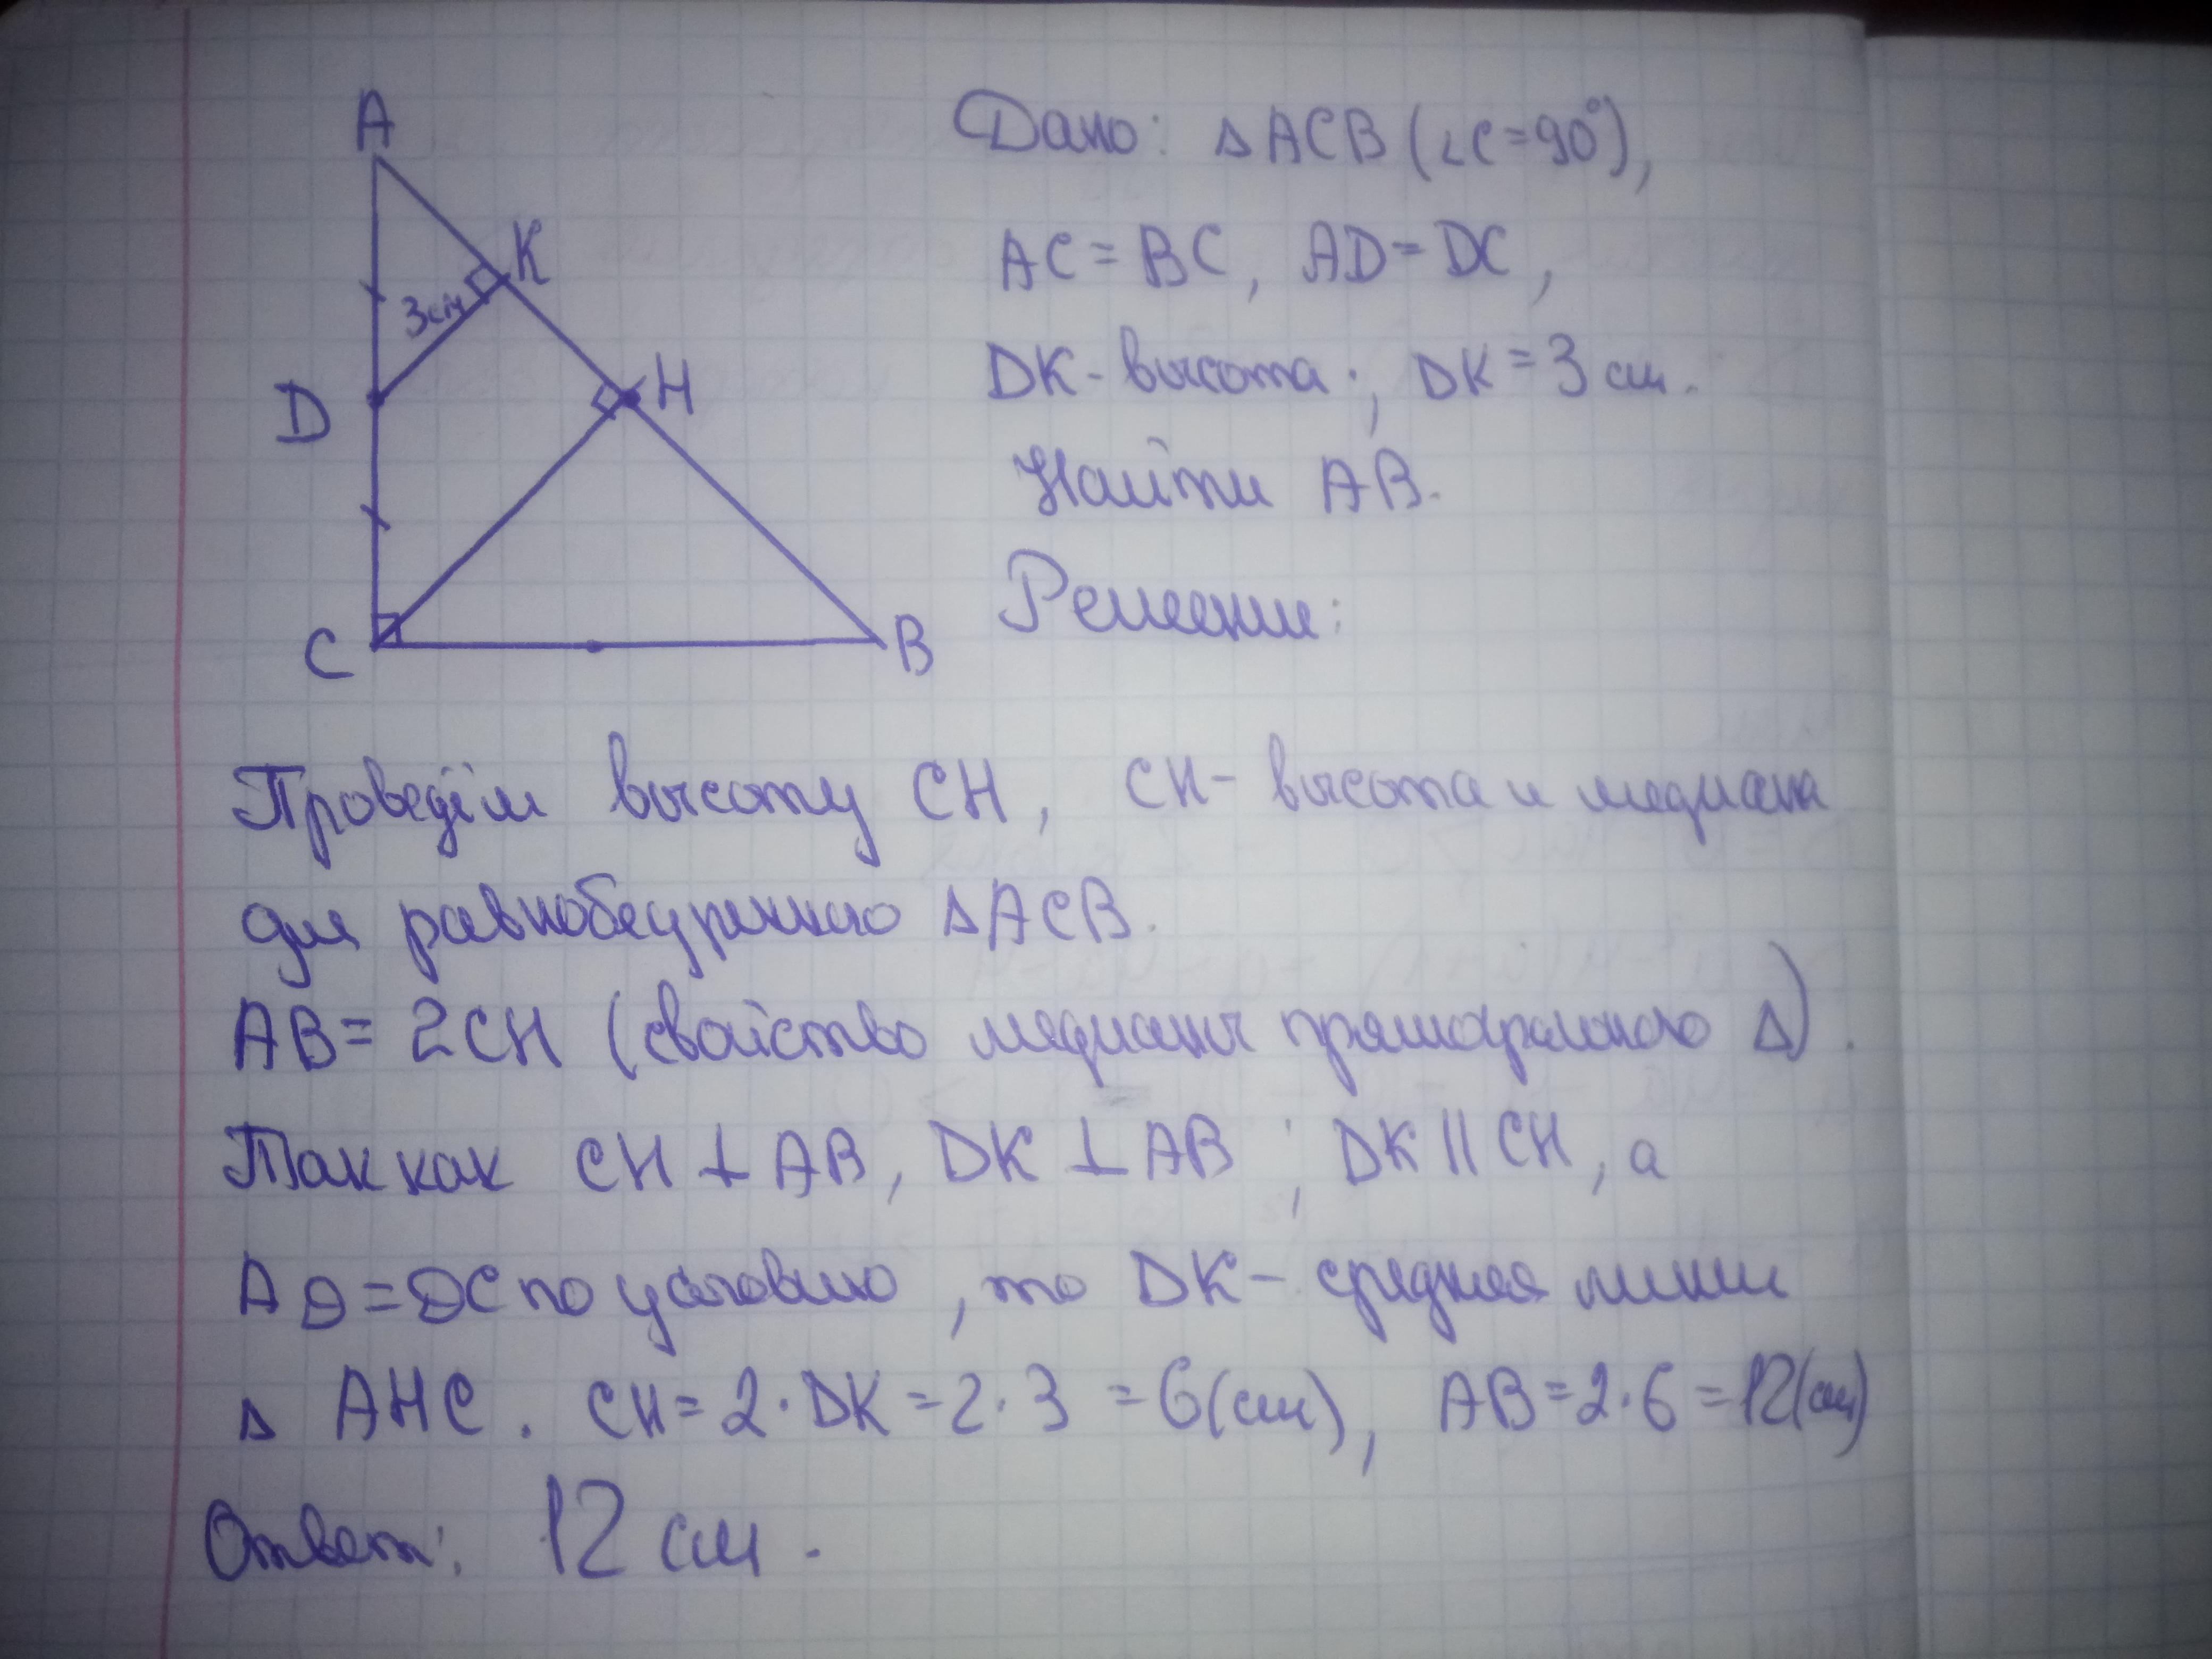 A
K
3см
D
H
C
B
Дано: △ACB (∠C=90°),
AC = BC, AD = DC,
DK - высота; DK = 3 см.
Найти AB.
Решение:
Проведём высоту CH, CH - высота и медиана
для равнобедренного △ACB.
AB = 2CH (свойство медианы прямоугольного △).
Так как CH ⊥ AB, DK ⊥ AB; DK || CH, а
AD = DC по условию, то DK - средняя линия
△ AHC. CH = 2·DK = 2·3 = 6(см), AB = 2·6 = 12(см)
Ответ: 12 см.